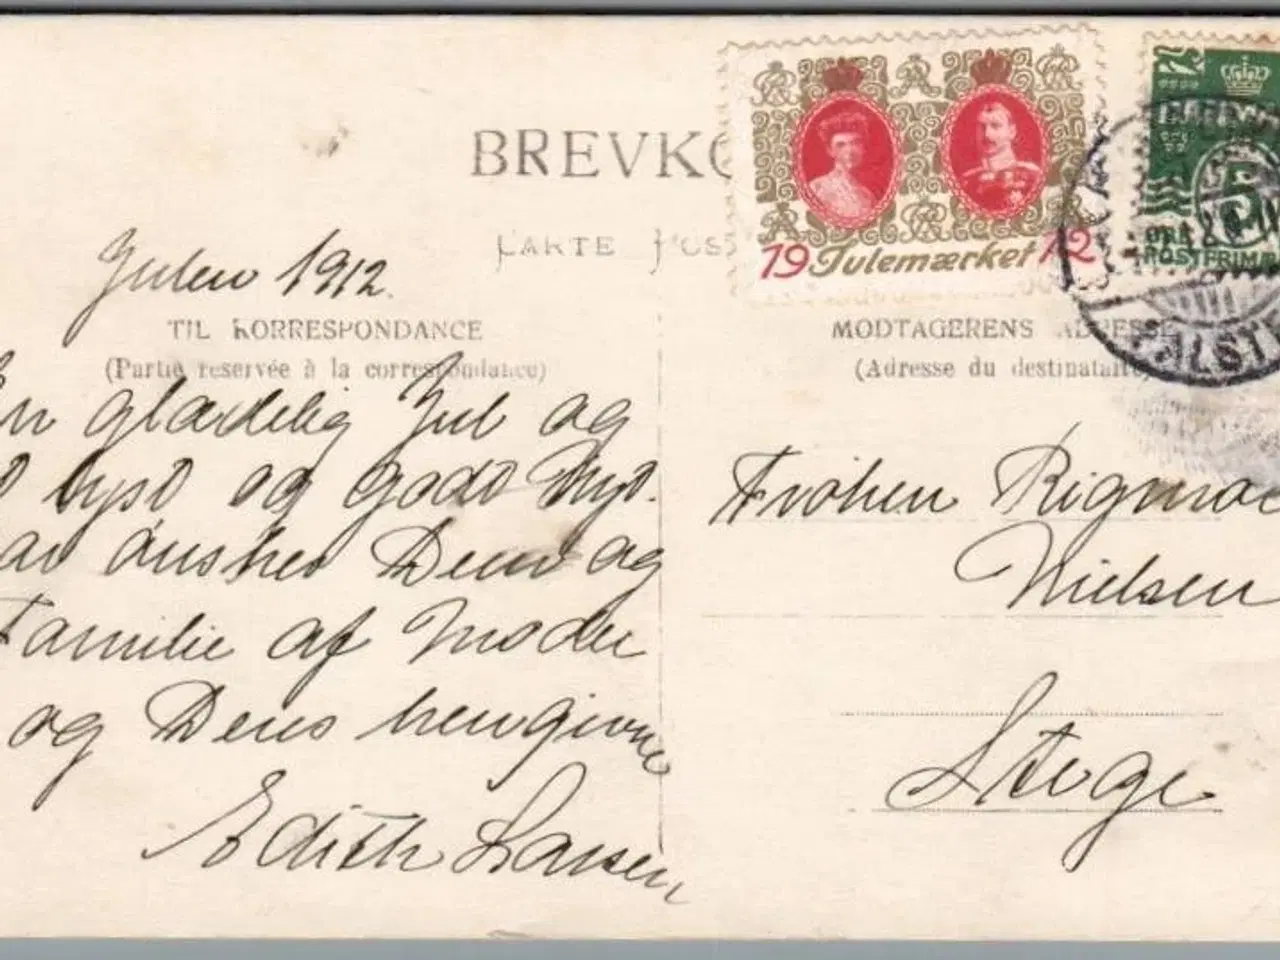 BREVKO
CARTE POS
19 Julemærket 12
5
ØRE
POSTFRIM
Julen 1912.
TIL KORRESPONDANCE
(Partie reservée à la correspondance)
MODTAGERENS ADRESSE
(Adresse du destinataire
n glædelig Jul og
lyst og godt Nyt-
aar ønskes Dem og
Familie af Moder
og Deres hengivne
Edith Larsen
Frøken Rigmor
Nielsen
Stege
FALST